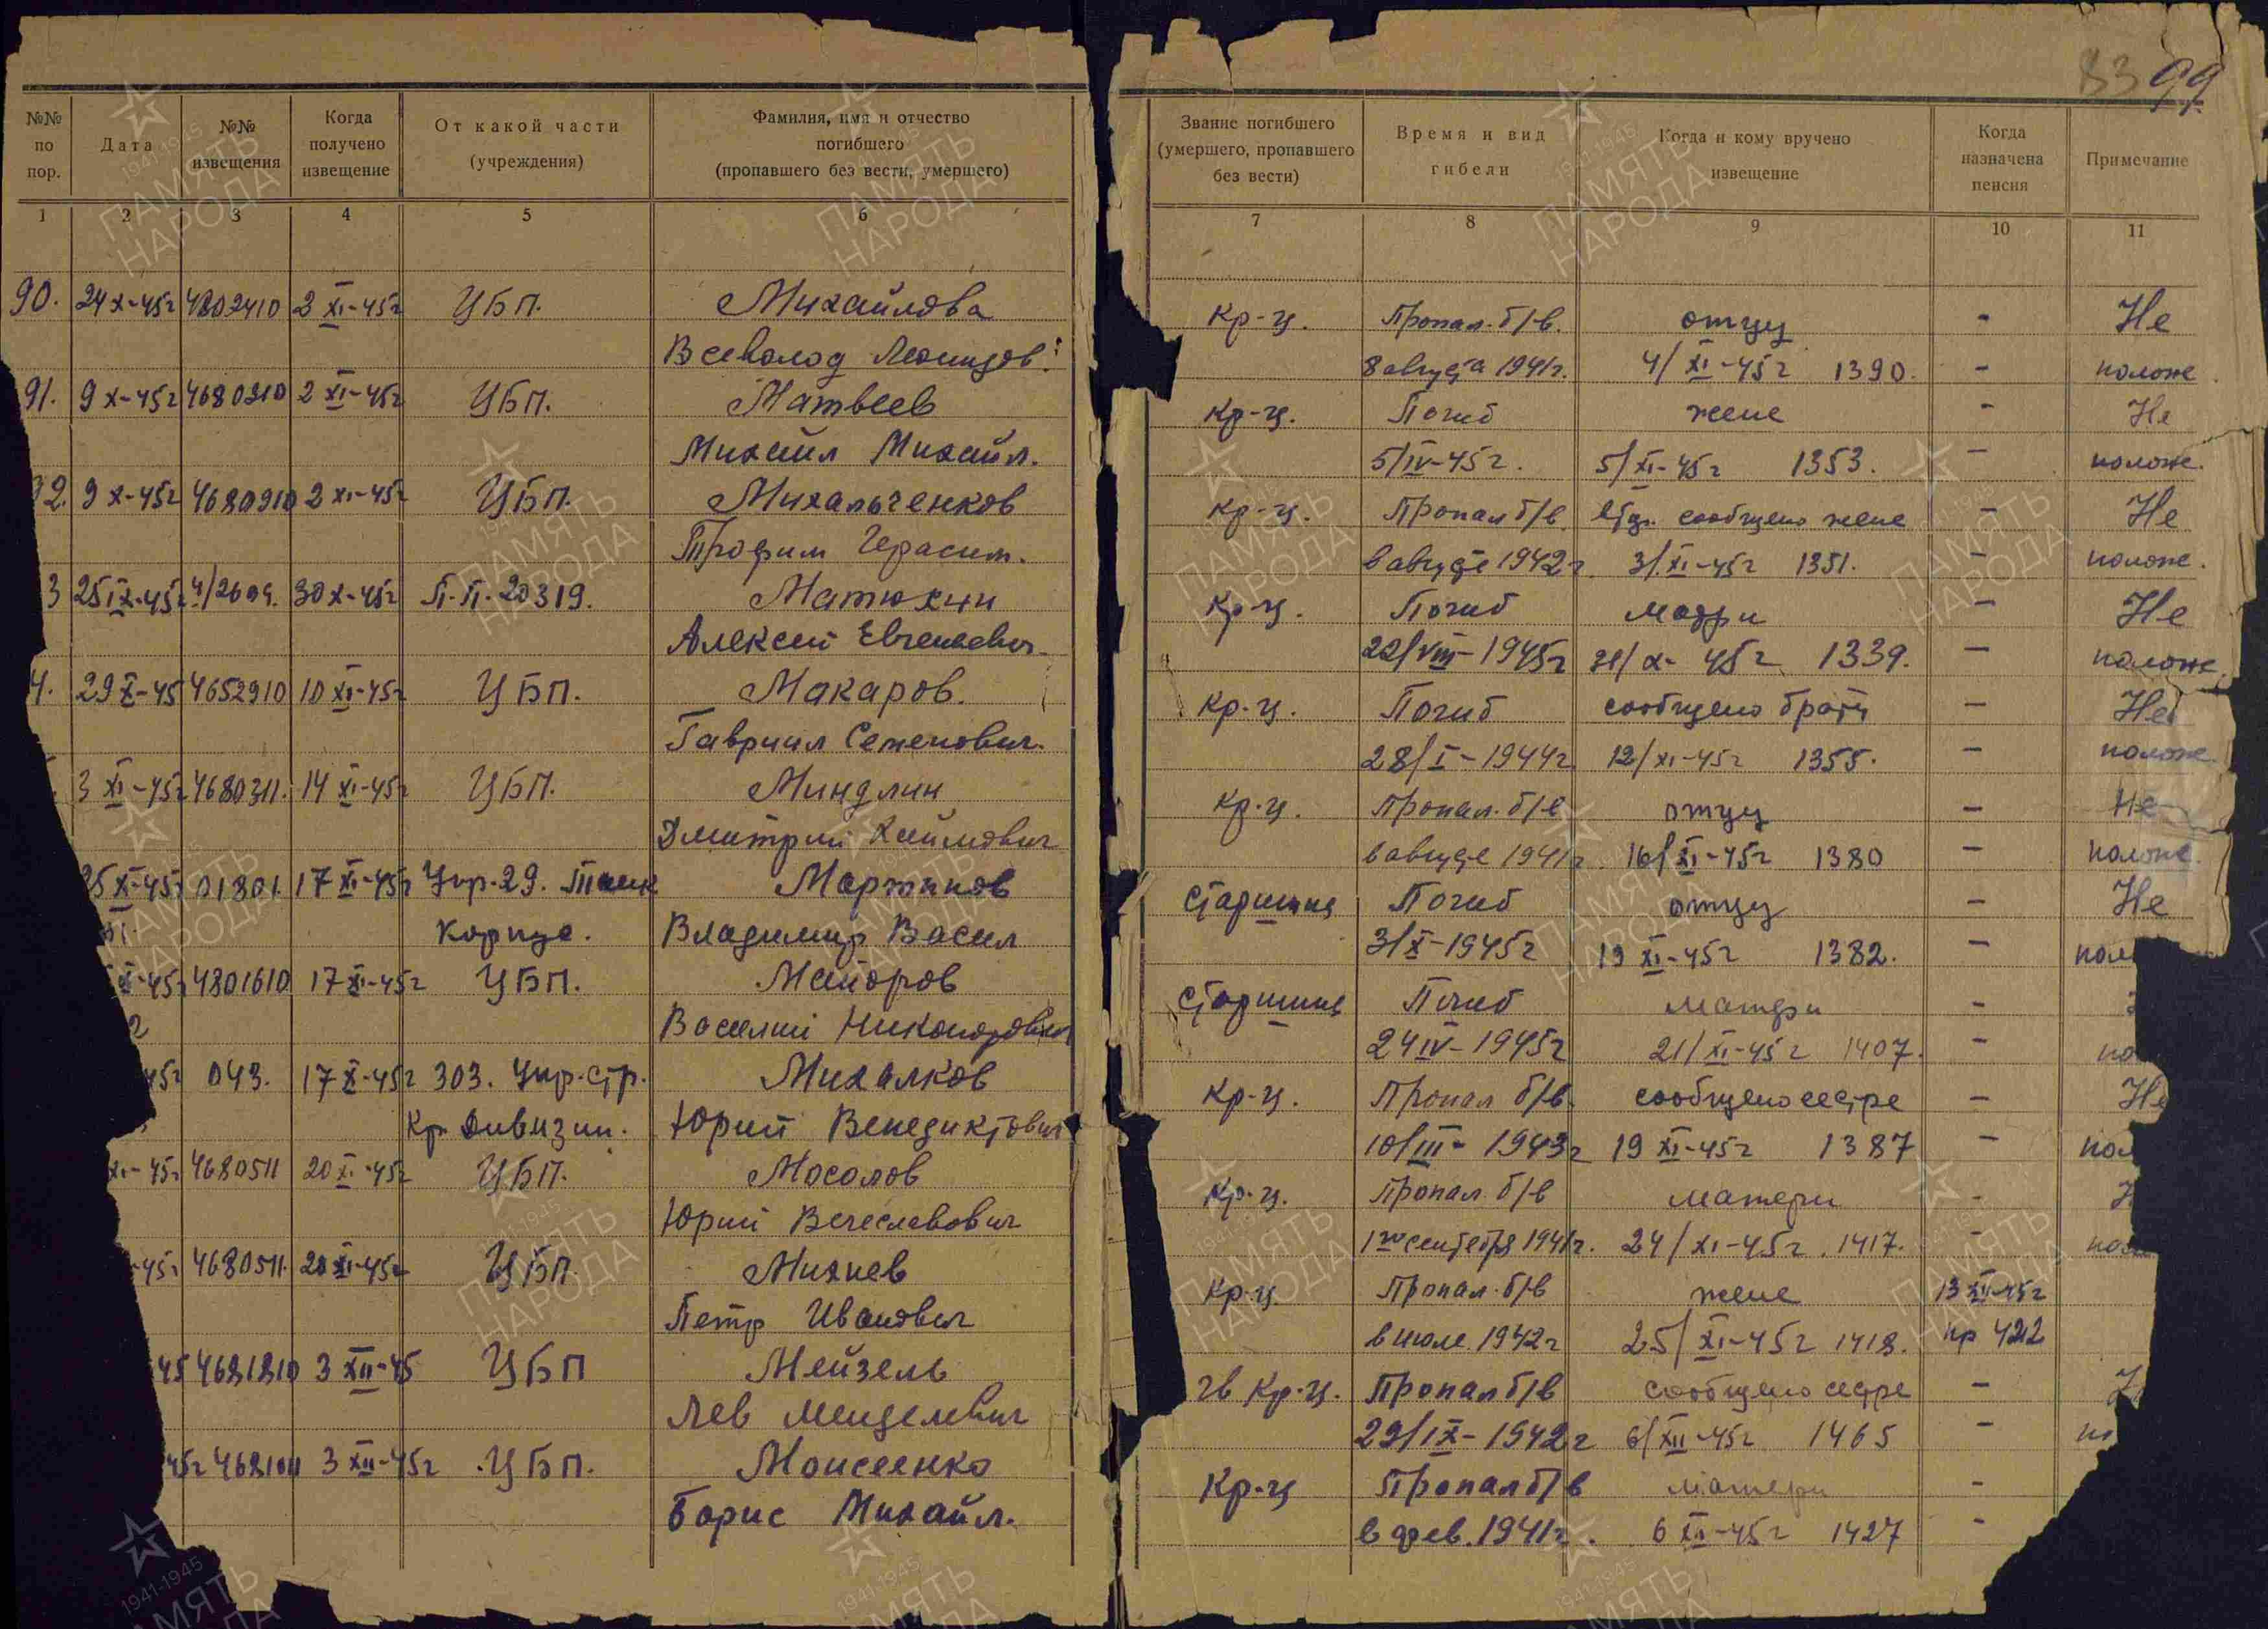 83 99
№№ по пор. Дата №№ извещения Когда получено извещение От какой части (учреждения) Фамилия, имя и отчество погибшего (пропавшего без вести, умершего) Звание погибшего (умершего, пропавшего без вести) Время и вид гибели Когда и кому вручено извещение Когда назначена пенсия Примечание
1 2 3 4 5 6 7 8 9 10 11
90. 24 X-45г 4802410 2 XI-45г ЦБП. Михайлова Кр-ц. Пропал. б/в. отцу - Не
Всеволод Леонидов. 8 августа 1941г. 4/XI-45г 1390. - положе
91. 9 X-45г 4680910 2 XI-45г ЦБП. Матвеев Кр-ц. Погиб жене - Не
Михаил Михайл. 5/IV-45г. 5/XI-45г 1353. - положе.
92. 9 X-45г 4680910 2 XI-45г ЦБП. Михальченков Кр-ц. Пропал б/в. сообщено жене - Не
Трофим Герасим. в августе 1942г. 3/XI-45г 1351. - положе.
3 25 IX-45г 4/2609. 30 X-45г П.П. 20319. Матюхин Кр-ц. Погиб матери - Не
Алексей Евгеньевич. 22/VIII-1945г 31/X-45г 1339. - положе
4. 29 X-45 4652910 10 XI-45г ЦБП. Макаров. Кр-ц. Погиб сообщено брату - Не
Гавриил Семенович. 28/I-1944г. 12/XI-45г 1355. - положе
3 XI-45г 4680311. 14 XI-45г ЦБП. Миндлин Кр-ц. Пропал. б/в отцу - Не
Дмитрий Хаймович в августе 1941г. 16/XI-45г 1380 - положе.
25 XI-45г 01801. 17 XI-45г Упр. 29. Танк Мартынов старшина Погиб отцу - Не
Корпус. Владимир Васил 3/X-1945г 19 XI-45г 1382. - пол
X-45г 4801610 17 XI-45г ЦБП. Майоров старшина Погиб матери -
Василий Никонорович 24 IV-1945г 21/XI-45г 1407. - по
45г 043. 17 X-45г 303. Упр. стр. Михалков Кр-ц. Пропал б/в. сообщено сестре - Не
Кр. Дивизии. Юрий Венедиктович 10/III-1943г 19 XI-45г 1387 - пол
XI-45г 4680511 20 XI-45г ЦБП. Мосолов Кр-ц. Пропал б/в матери - Н
Юрий Вячеславович сентября 1941г. 24/XI-45г. 1417. - пол
-45г 4680511. 20 XI-45г ЦБП Михнев Кр-ц. Пропал. б/в жене 13 XII-45г
Петр Иванович в июле. 1942г 25/XI-45г 1418. пр 422
45 4681810 3 XII-45 ЦБП Мейзель гв Кр-ц. Пропал б/в сообщено сестре -
Лев Менделевич 29/IX-1942г 6/XII-45г 1465 -
45г 3 XII-45г ЦБП. Моисеенко Кр-ц Пропал б/в матери -
Борис Михайл. в фев. 1941г. 6 XII-45г 1427 -
ПАМЯТЬ НАРОДА
1941-1945